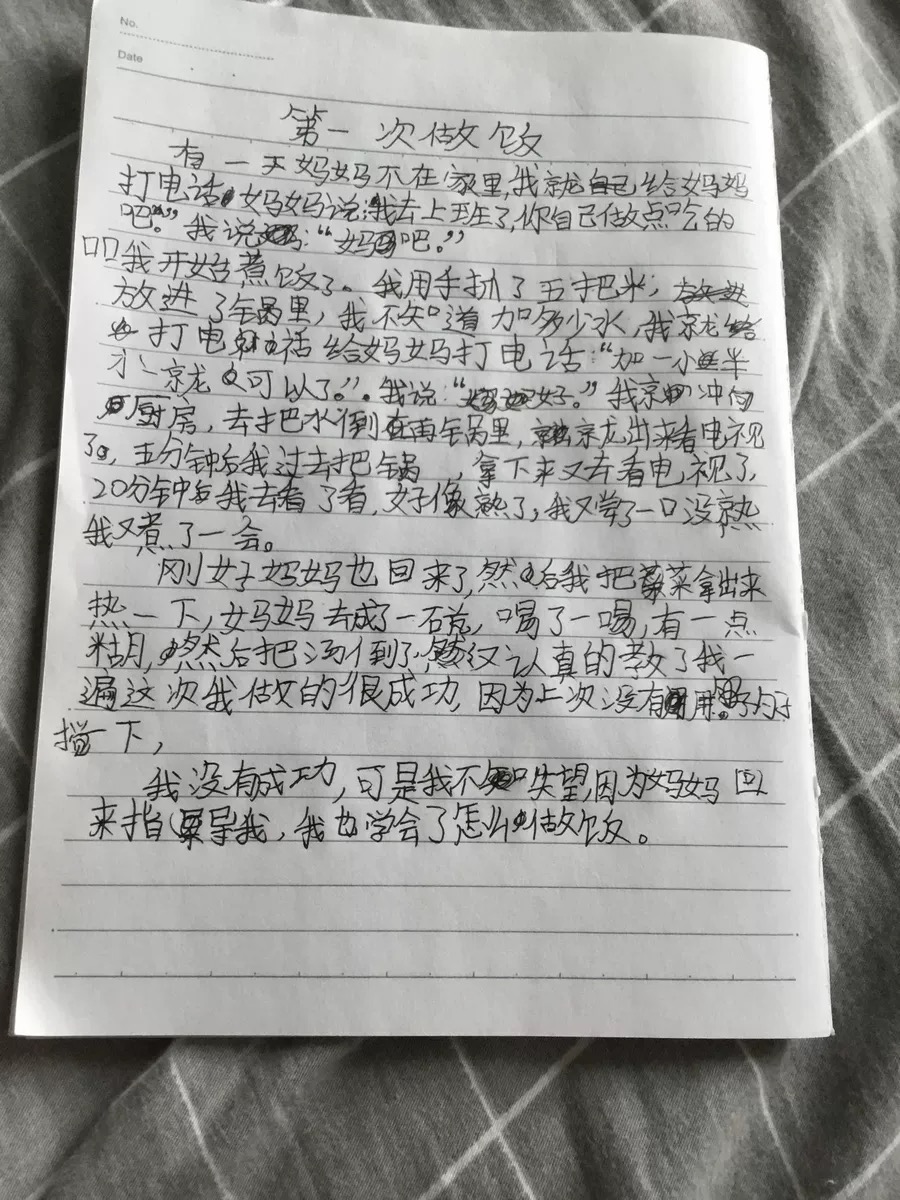 No.
Date
第一次做饭
有一天妈妈不在家里,我就自己给妈妈
打电话,妈妈说:我去上班了,你自己做点吃的
吧。”我说:“吧。”
我开始煮饭了。我用手抓了五把米,
放进了锅里,我不知道加多少水,我就
打电话给妈妈打电话:“加一小半
就可以了”。我说:“好。”我就冲向
厨房,去把水倒在电锅里,就出来看电视
了。五分钟后我过去把锅,拿下来又去看电视了,
20分钟后我去看了看,好像熟了,我又尝了一口没熟
我又煮了一会。
刚好妈妈也回来了,然后我把菜拿出来
热一下,妈妈去成了一碗,喝了一喝,有一点
糊,然后把汤倒了,又认真的教了我一
遍这次我做的很成功,因为上次没有用勺子
搅一下,
我没有成功,可是我不失望,因为妈妈回
来指导我,我也学会了怎么做饭。